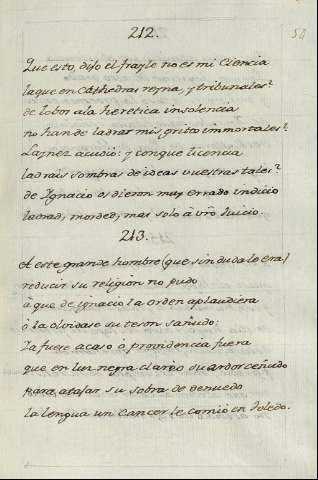 212.
54
Que esto, dijo el frayle no es mi Ciencia
la que en Cathedras reyna, y tribunales?
de lobor a la heretica insolencia
no han de ladrar mis gritos immortales?
Laynez acudio: y con que licencia
ladrais sombras de ideas vuestras tales?
de Ignacio os dieron muy errado indicio
ladrad, morded, mas solo à vrõ Juicio.
213.
A este grande hombre (que sin duda lo era)
reducir su religion no pudo
à que de ignacio la orden aplaudiera
ò la olvidase su teson sañudo:
Ya fuese acaso ò providencia fuera
que en luz negra clareò su ardor ceñudo
Para atajar su sobra de denuedo
la lengua un Cancer le comiò en Toledo.